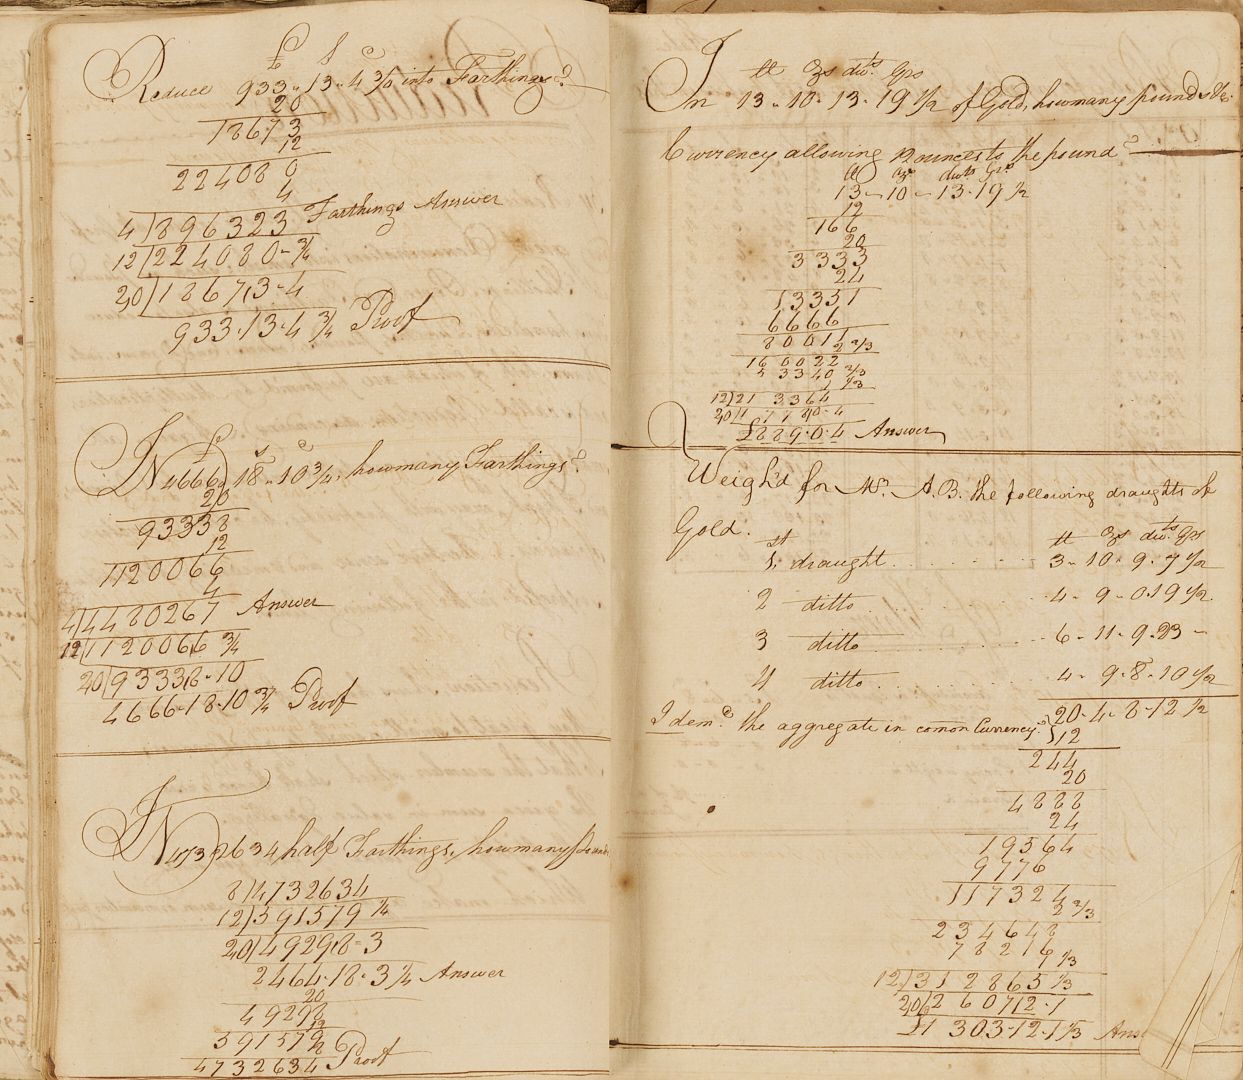 £ s d
Reduce 933 - 13 - 4 3/4 into Farthings?
20
18673
12
224080
4
4 | 896323 Farthings Answer
12 | 224080 - 3/4
20 | 1867,3 - 4
933 . 13 . 4 3/4 Proof
£ s d
IN 4666 . 18 . 10 3/4, how many Farthings?
20
93338
12
1120066
4
4 | 4480267 Answer
12 | 1120066 3/4
20 | 9333,8 - 10
4666 - 18 - 10 3/4 Proof
IN 4732634 half Farthings, how many Pounds
8 | 4732634
12 | 591579 1/4
20 | 4929,8 - 3
2464 . 18 . 3 1/4 Answer
20
49298
12
591579
8
4732634 Proof
tt Ozs dwts Grs
In 13 - 10 - 13 - 19 1/2 of Gold, how many pounds &c.
Currency allowing 12 ounces to the pound?
tt Ozs dwts Grs
13 - 10 - 13 . 19 1/2
12
166
20
3333
24
13351
6666
80011
2 2/3
160022
53340 2/3
1 1/3
12 | 213364
20 | 1778,0 - 4
£889 . 0 . 4 Answer
Weigh'd for Mr. A. B. the following draughts of
Gold.
tt Ozs dwts Grs
1st draught . . . . . . 3 - 10 - 9 - 7 1/2
2 ditto . . . . . . 4 - 9 - 0 19 1/2
3 ditto . . . . . . 6 - 11 - 9 - 23 -
4 ditto . . . . . . 4 - 9 - 8 - 10 1/2
20 - 4 - 8 - 12 1/2
I demd the aggregate in comon Currency?
12
244
20
4888
24
19564
9776
117324
2 2/3
234648
78216
1 1/3
12 | 312865 1/3
20 | 2607,2 - 1
£1303 - 12 - 1 1/3 Ans